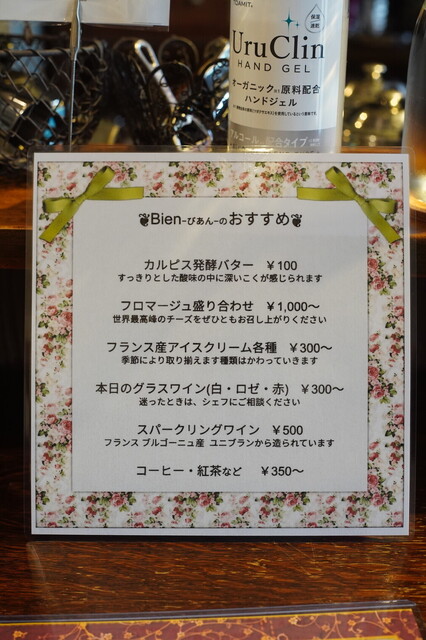 UruClin
HAND GEL
オーガニック※1原料配合
ハンドジェル
❦Bien-びあん-のおすすめ❦
カルピス発酵バター ￥100
すっきりとした酸味の中に深いこくが感じられます
フロマージュ盛り合わせ ￥1,000～
世界最高峰のチーズをぜひともお召し上がりください
フランス産アイスクリーム各種 ￥300～
季節により取り揃えます種類はかわっていきます
本日のグラスワイン(白・ロゼ・赤) ￥300～
迷ったときは、シェフにご相談ください
スパークリングワイン ￥500
フランス ブルゴーニュ産 ユニブランから造られています
コーヒー・紅茶など ￥350～